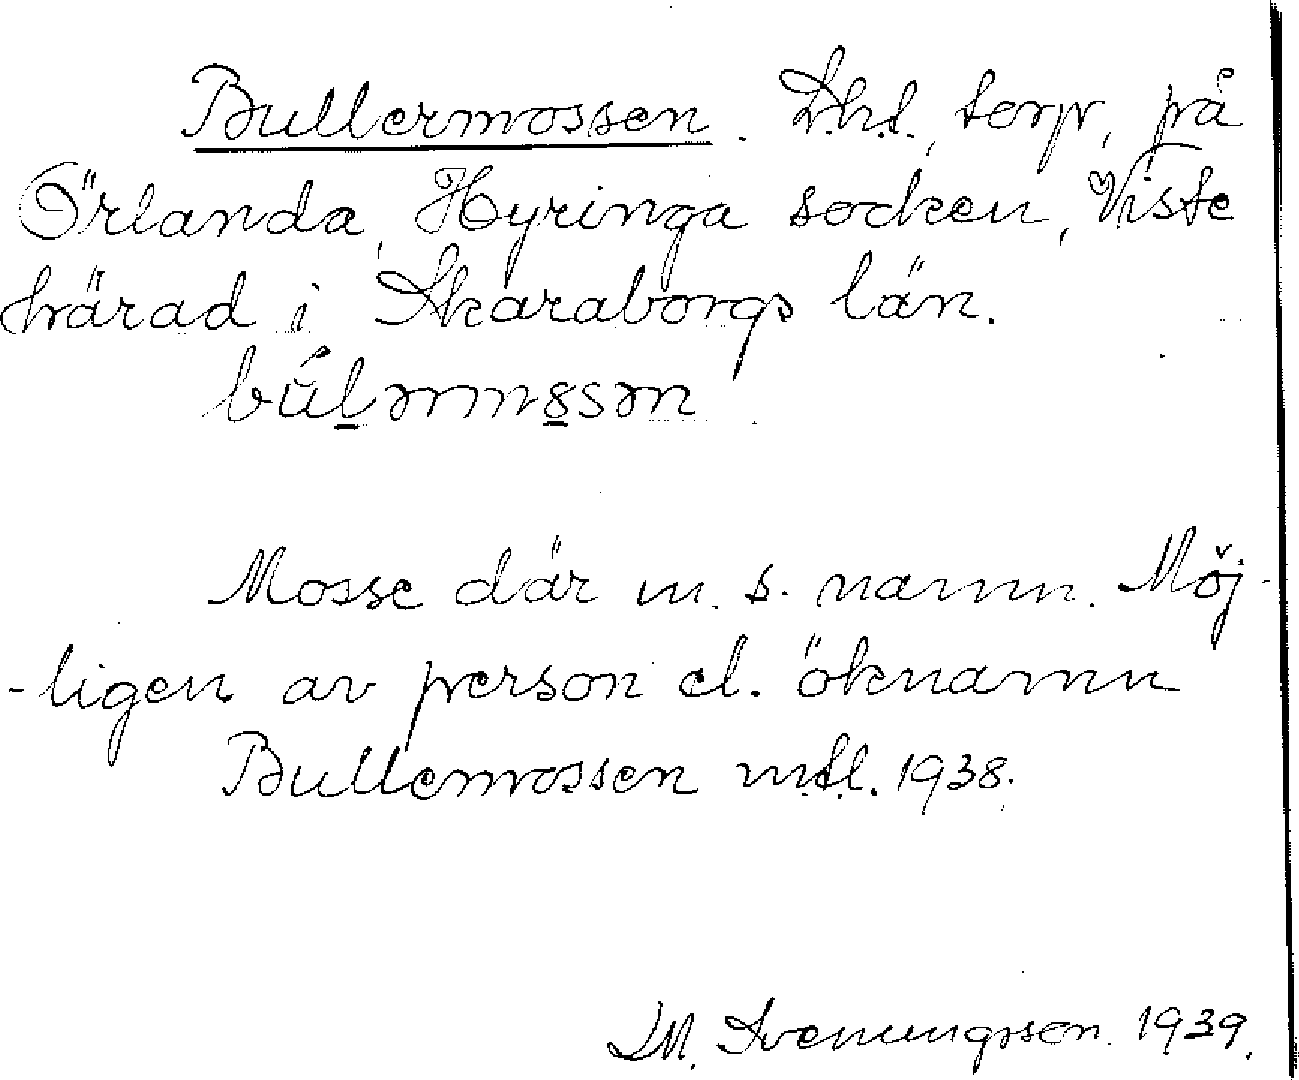 Bullermossen. Lht, torp, på
Örlanda, Hyringa socken, Viste
härad i Skaraborgs län.
Mosse där m. s. namn. Möj-
-ligen av person el. öknamn
Bullemossen mtl. 1938.
LM. Svenungsson. 1939.